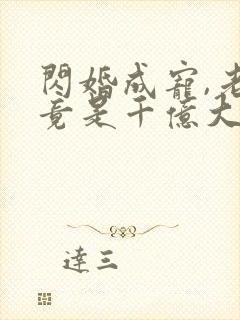 閃婚成寵,老
竟是千億大
達三